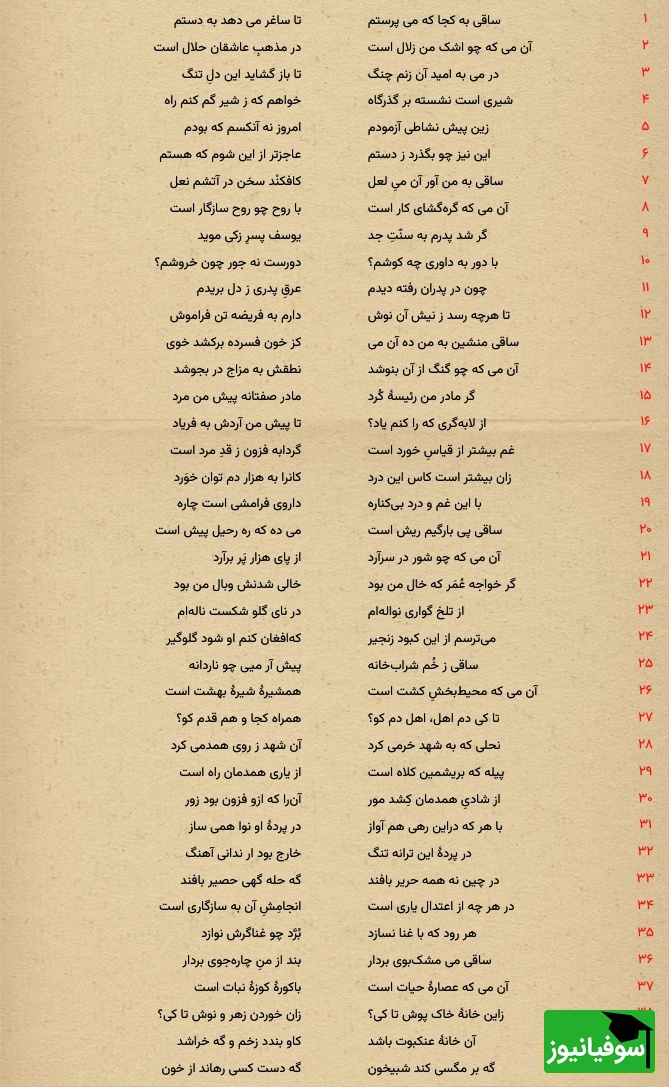 ۱ ساقی به کجا که می پرستم تا ساغر می دهد به دستم
۲ آن می که چو اشک من زلال است در مذهبِ عاشقان حلال است
۳ در می به امید آن زنم چنگ تا باز گشاید این دلِ تنگ
۴ شیری است نشسته بر گذرگاه خواهم که ز شیر گم کنم راه
۵ زین پیش نشاطی آزمودم امروز نه آنکسم که بودم
۶ این نیز چو بگذرد ز دستم عاجزتر از این شوم که هستم
۷ ساقی به من آور آن میِ لعل کافکنْد سخن در آتشم نعل
۸ آن می که گره‌گشای کار است با روح چو روح سازگار است
۹ گر شد پدرم به سنّتِ جد یوسف پسرِ زکی موید
۱۰ با دور به داوری چه کوشم؟ دورست نه جور چون خروشم؟
۱۱ چون در پدران رفته دیدم عرقِ پدری ز دل بریدم
۱۲ تا هرچه رسد ز نیش آن نوش دارم به فریضه تن فراموش
۱۳ ساقی منشین به من ده آن می کز خون فسرده برکشد خوی
۱۴ آن می که چو گنگ از آن بنوشد نطقش به مزاج در بجوشد
۱۵ گر مادر من رئیسهٔ کُرد مادر صفتانه پیش من مرد
۱۶ از لابه‌گری که را کنم یاد؟ تا پیش من آردش به فریاد
۱۷ غم بیشتر از قیاسِ خورد است گردابه فزون ز قدِ مرد است
۱۸ زان بیشتر است کاس این درد کانرا به هزار دم توان خوَرد
۱۹ با این غم و درد بی‌کناره داروی فرامشی است چاره
۲۰ ساقی پی بارگیم ریش است می ده که ره رحیل پیش است
۲۱ آن می که چو شور در سرآرد از پای هزار پَر برآرد
۲۲ گر خواجه عُمَر که خال من بود خالی شدنش وبال من بود
۲۳ از تلخ گواری نواله‌ام در نای گلو شکست ناله‌ام
۲۴ می‌ترسم از این کبود زنجیر که‌افغان کنم او شود گلوگیر
۲۵ ساقی ز خُم شراب‌خانه پیش آر میی چو ناردانه
۲۶ آن می که محیط‌بخشِ کشت است همشیرهٔ شیرهٔ بهشت است
۲۷ تا کی دم اهل، اهل دم کو؟ همراه کجا و هم قدم کو؟
۲۸ نحلی که به شهد خرمی کرد آن شهد ز روی همدمی کرد
۲۹ پیله که بریشمین کلاه است از یاری همدمان راه است
۳۰ از شادیِ همدمان کِشد مور آن‌را که ازو فزون بود زور
۳۱ با هر که دراین رهی هم آواز در پردهٔ او نوا همی ساز
۳۲ در پردهٔ این ترانه تنگ خارج بود ار ندانی آهنگ
۳۳ در چین نه همه حریر بافند گه حله گهی حصیر بافند
۳۴ در هر چه از اعتدال یاری است انجامِشِ آن به سازگاری است
۳۵ هر رود که با غنا نسازد بُرَّد چو غناگرش نوازد
۳۶ ساقی می مشک‌بوی بردار بند از منِ چاره‌جوی بردار
۳۷ آن می که عصارهٔ حیات است باکورهٔ کوزهٔ نبات است
زاین خانهٔ خاک پوش تا کی؟ زان خوردن زهر و نوش تا کی؟
آن خانهٔ عنکبوت باشد کاو بندد زخم و گه خراشد
گه بر مگسی کند شبیخون گه دست کسی رهاند از خون
سوفیانیوز